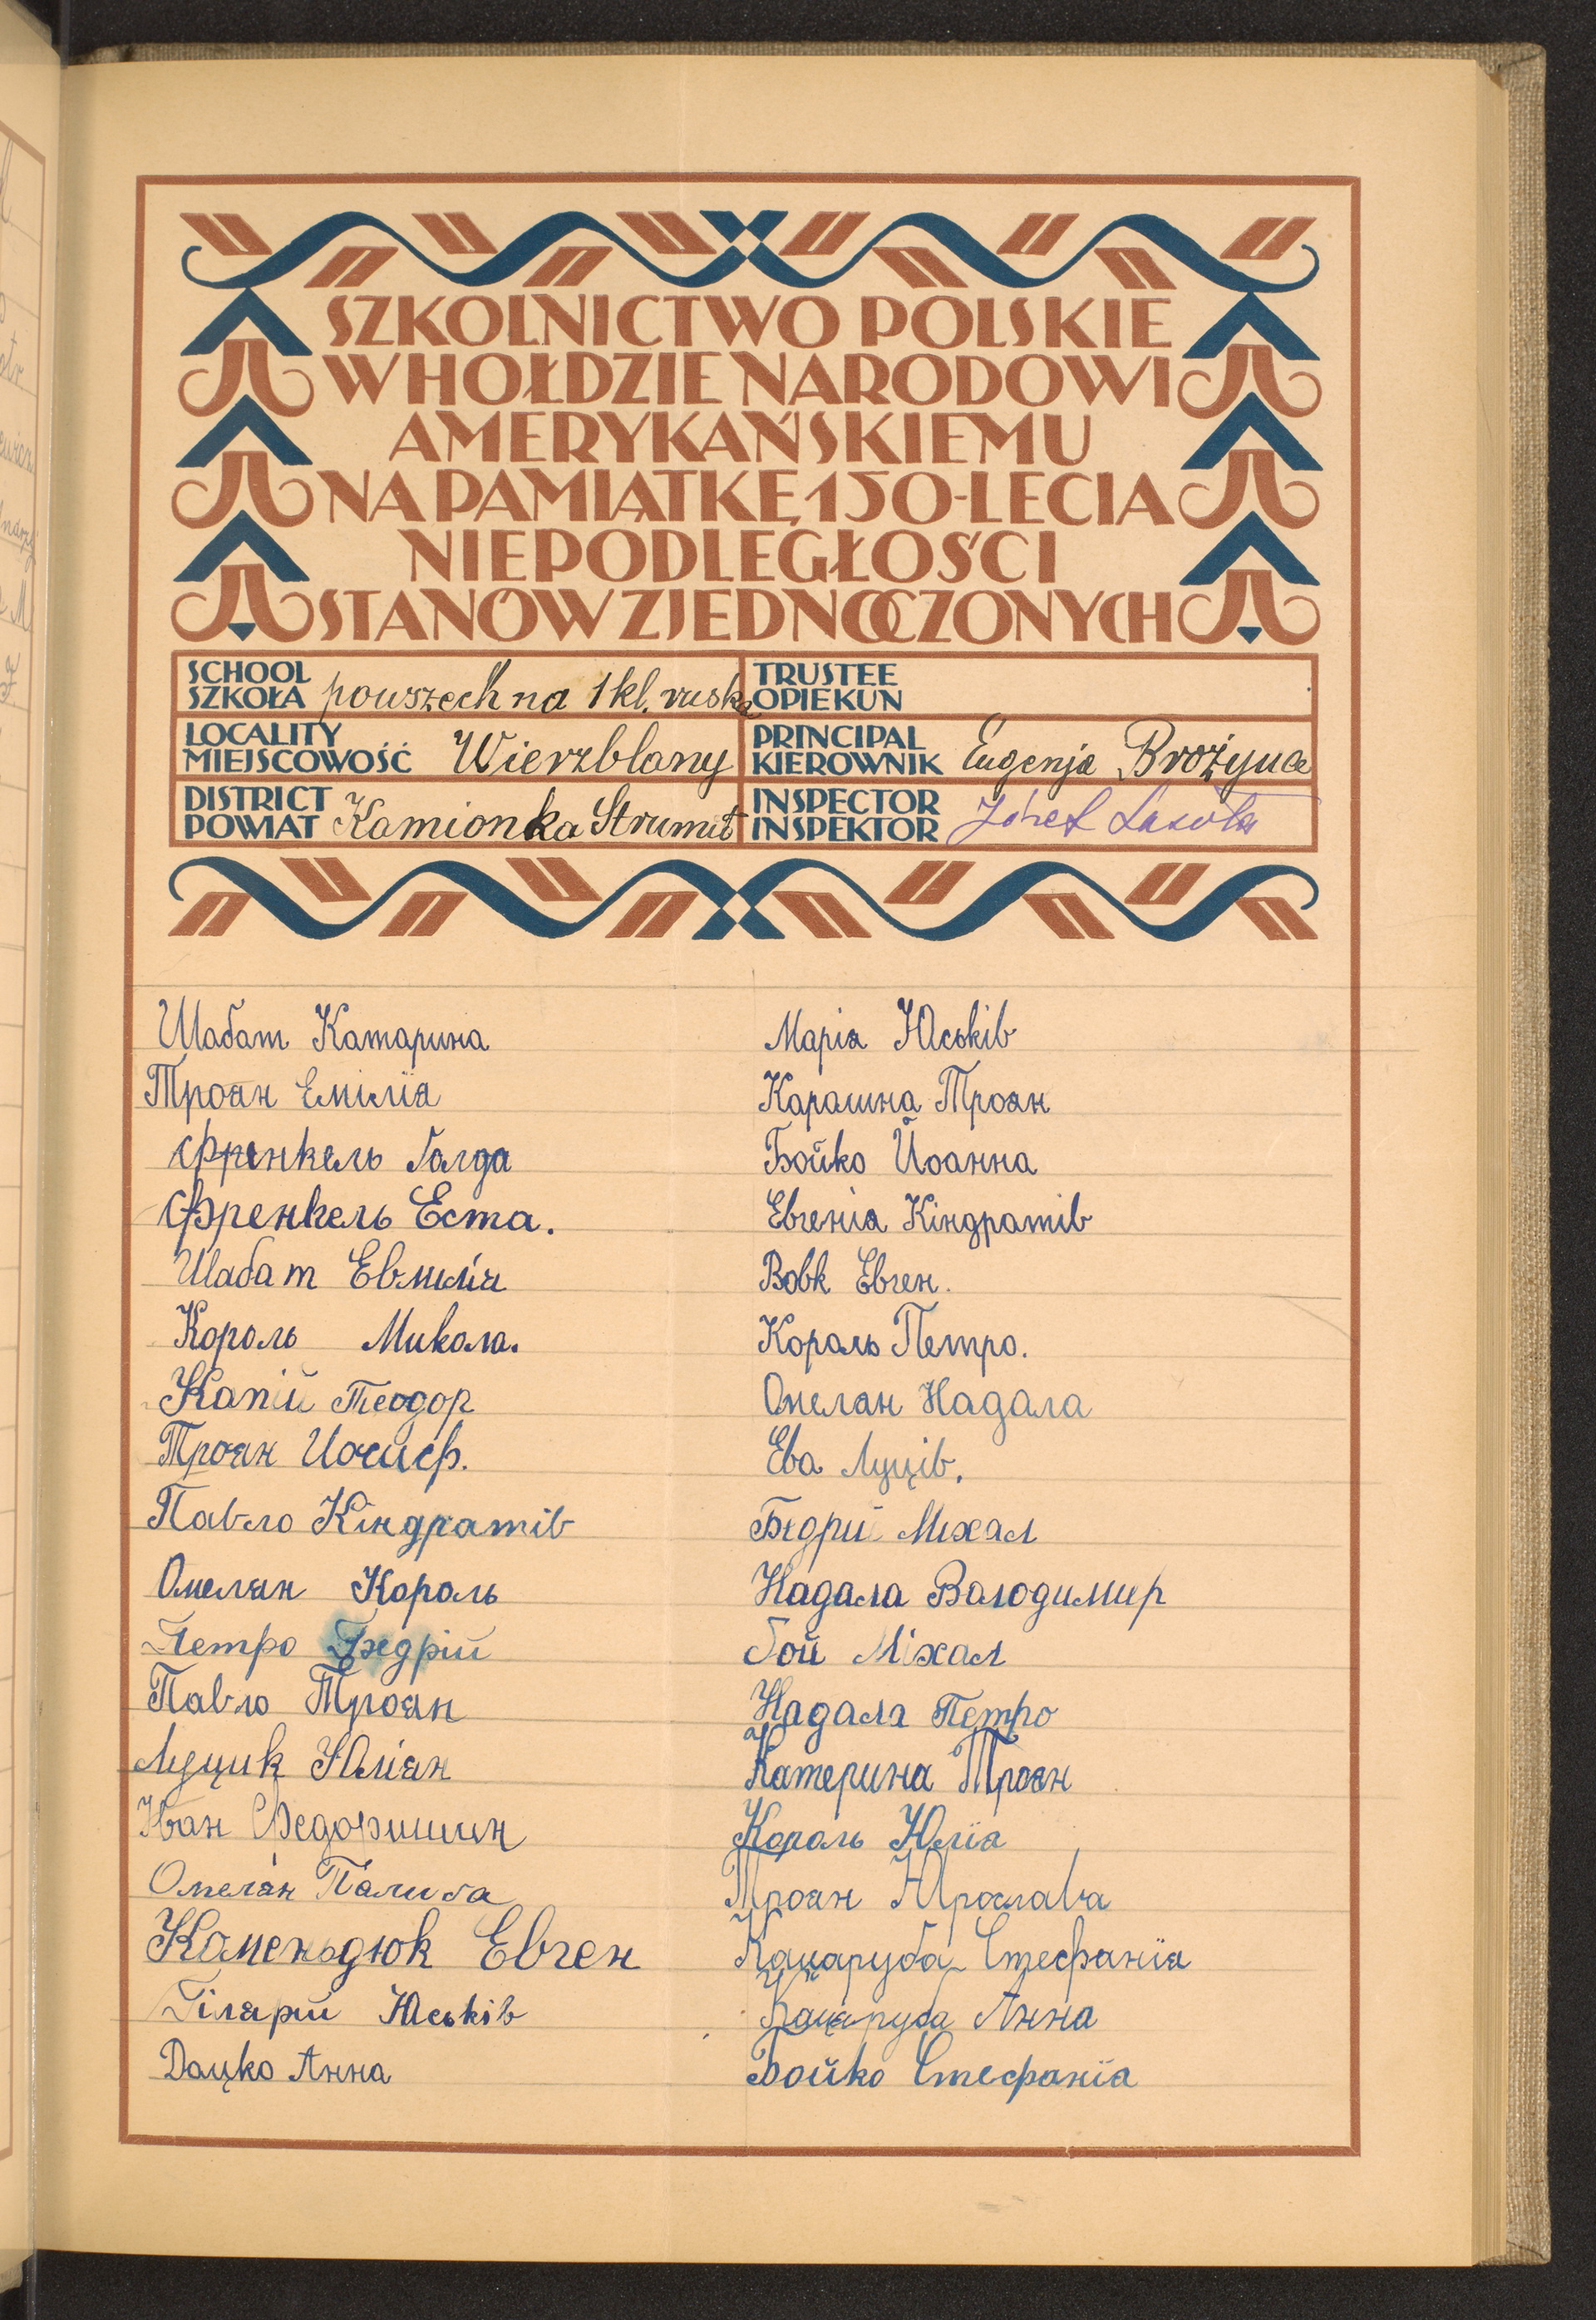 SZKOLNICTWO POLSKIE
W HOŁDZIE NARODOWI
AMERYKAŃSKIEMU
NA PAMIĄTKĘ 150-LECIA
NIEPODLEGŁOŚCI
STANÓW ZJEDNOCZONYCH
SCHOOL
SZKOŁA powszechna 1 kl. ruska
TRUSTEE
OPIEKUN
LOCALITY
MIEJSCOWOŚĆ Wierzblany
PRINCIPAL
KIEROWNIK Eugenja Brożyna
DISTRICT
POWIAT Kamionka Strumił
INSPECTOR
INSPEKTOR Józef Lasota
Шабат Катарина
Троян Емілїя
Френкель Голда
Френкель Еста.
Шабат Евмілія
Король Микола.
Капій Теодор
Троян Иосиф.
Павло Кіндратів
Омелян Король
Петро Бедрій
Павло Троян
Луцик Юліан
Іван Федоришин
Омелян Палига
Каменьдюк Евген
Гіларій Юськів
Дацко Анна
Марія Юськів
Каралина Троян
Бойко Йоанна
Евгенія Кіндратів
Вовк Евген.
Король Петро.
Омелан Надала
Ева Луців.
Бедрий Міхал
Надала Володимир
Гой Міхал
Надала Петро
Катерина Троян
Король Юлїя
Троян Ярослава
Кацаруба Стефанїя
Кацаруба Анна
Бойко Стефанїя